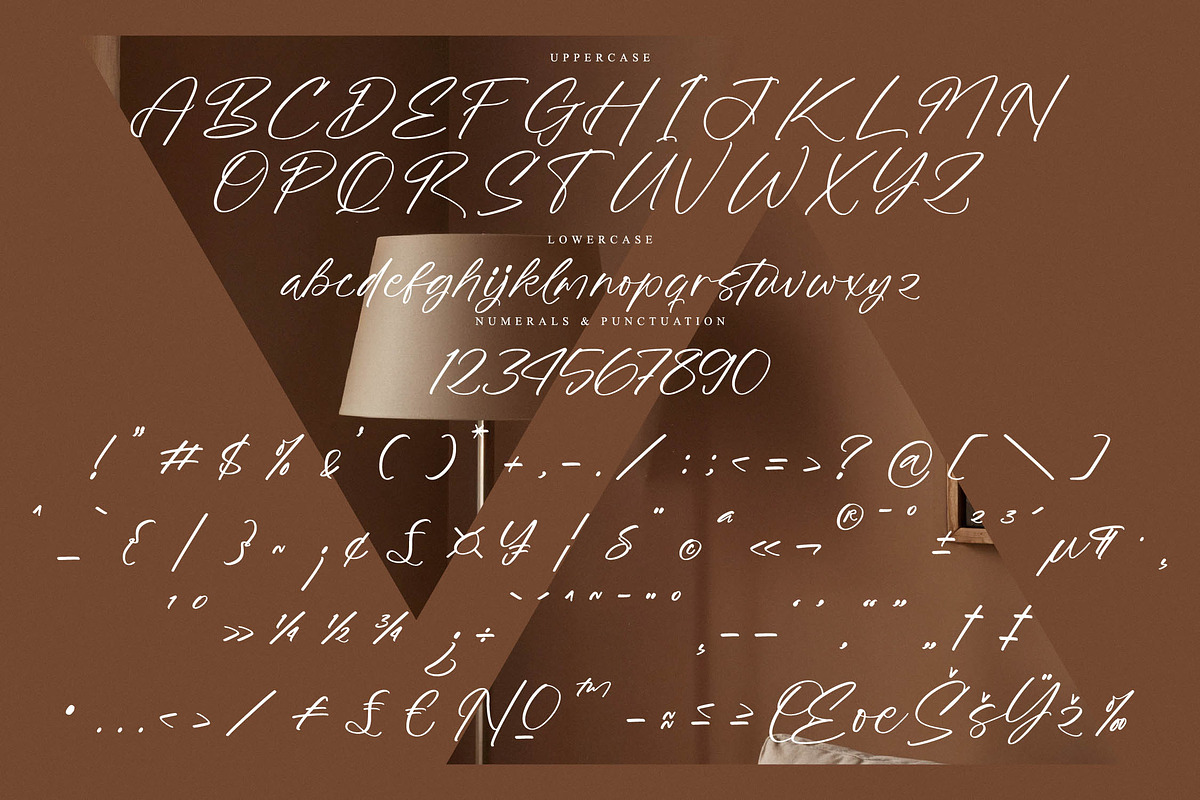 UPPERCASE
ABCDEFGHIJKLMN
OPQRSTUVWXYZ
LOWERCASE
abcdefghijklmnopqrstuvwxyz
NUMERALS & PUNCTUATION
1234567890
! " # $ % & ' ( ) * + , - . / : ; < = > ? @ [ \ ]
^ _ ` { | } ~ ¡ ¢ £ ¤ ¥ ¦ § ¨ © ª « ¬ ® ¯ ° ± ² ³ ´ µ ¶ · ¸
¹ º » ¼ ½ ¾ ¿ ÷ ` ´ ^ ~ ¯ ¨ ° ‚ – — ‘ ’ , “ ” „ † ‡
• … ‹ › ⁄ ₣ ₤ € № ™ − ≈ ≤ ≥ Œ œ Š š Ÿ ž ‰